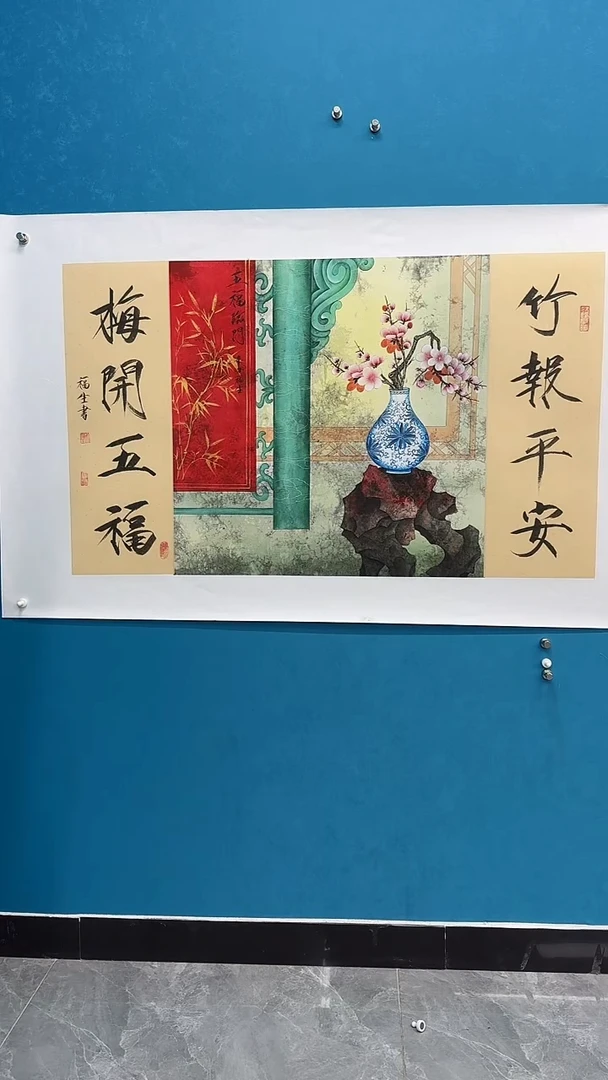 竹報平安
五福臨門
梅開五福
福生書